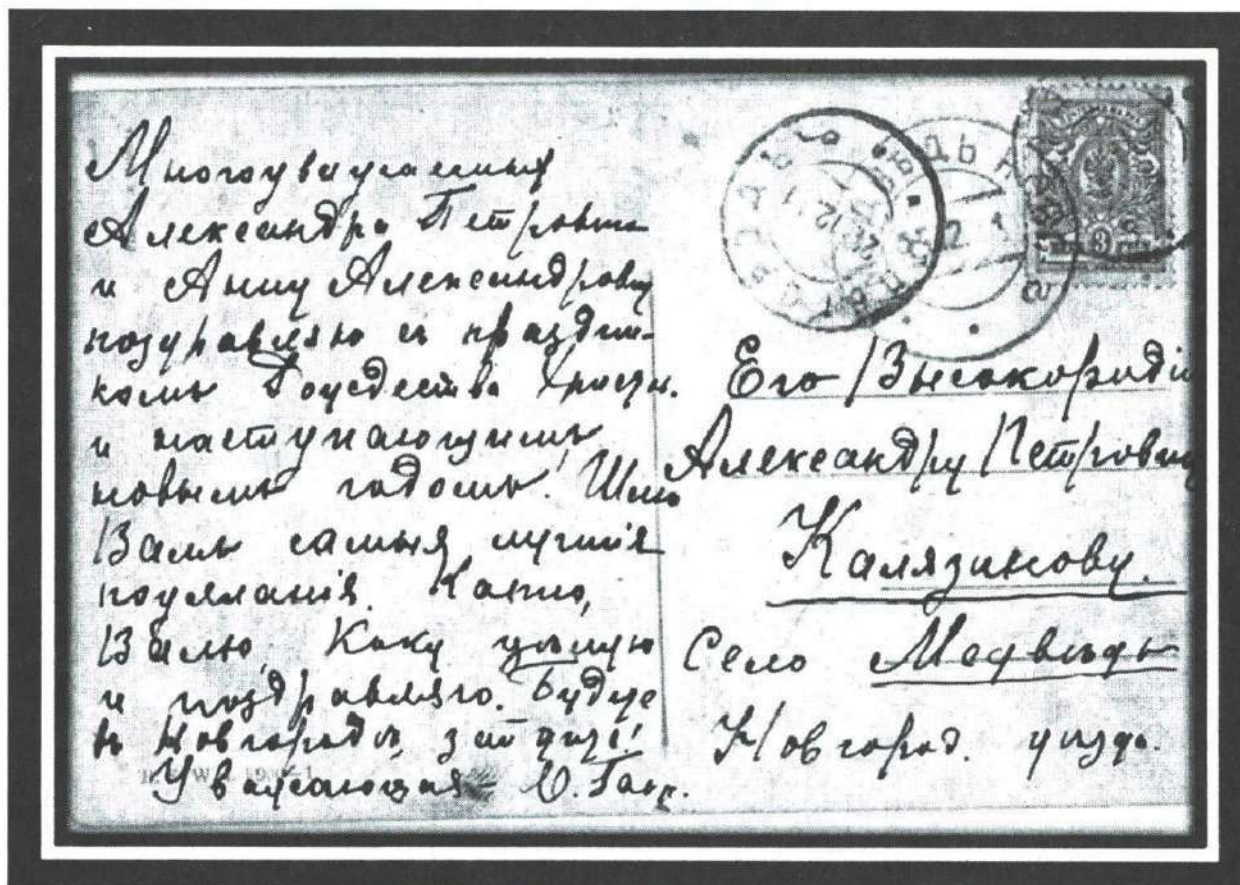 Многоуважаемыя
Александра Петровича
и Анну Александровну
поздравляю съ праздни-
комъ Рождества Христ.
и наступающимъ
новымъ годомъ! Шлю
Вамъ самыя лучшія
пожеланія. Катю,
Валю, Коку цѣлую
и поздравляю. Будете
въ Новгородѣ,
Уважающая
Его Высокородію
Александру Петровичу
Калязинову.
Село Медвѣдь
Новгород. уѣзда.
3